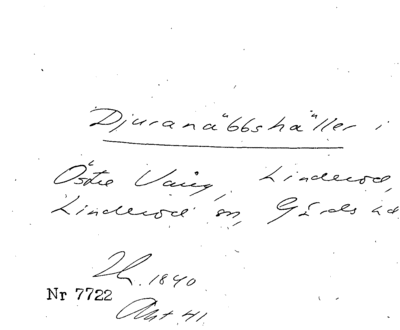 Djuranäbbshäller i
Östre Vång, Linderöd,
Linderöd sn, Gärds hd
1840
Nr 7722
Ant. 41.